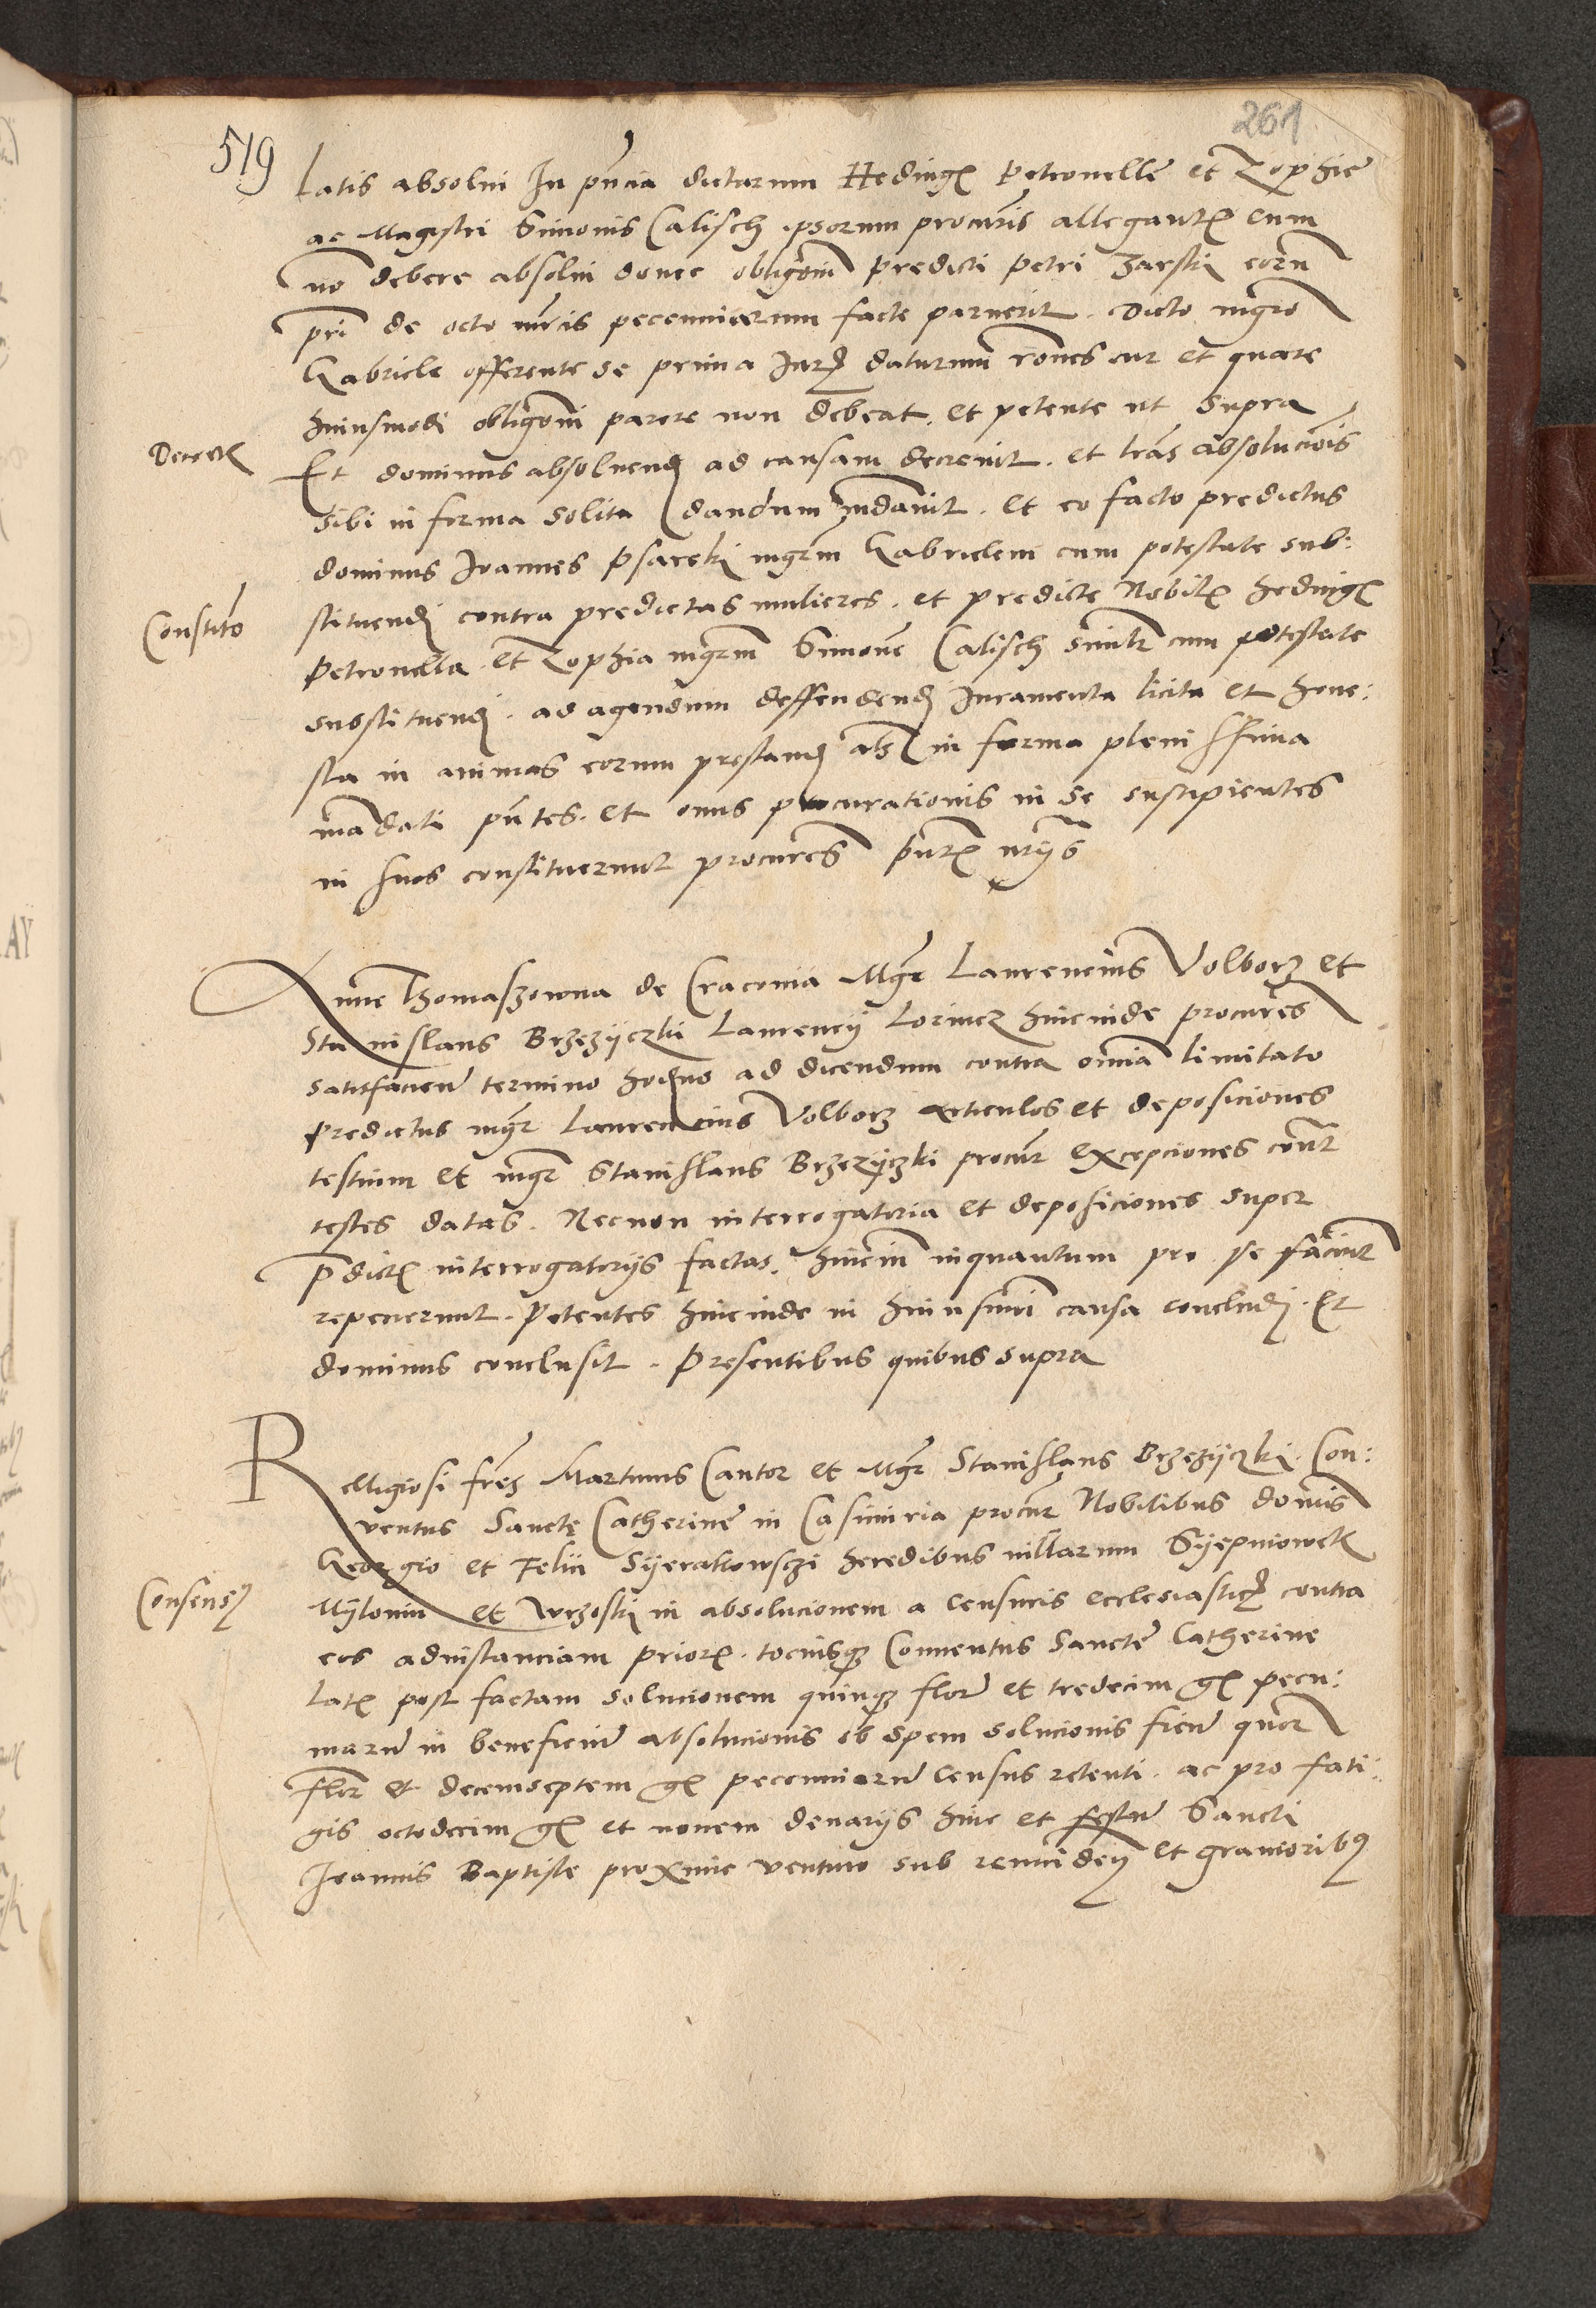 261
519
latis absolui In pñcia dictarum Hedwigis Petronelle et Zophie
ac Magistri Simonis Calisch ipsorum procuris allegantis eum
no debere absolui donec obligõni predicti Petri Zarski eorum
pri de octo mrcis pecenniarum facte paruerit. Dicto mgro
Gabriele offerente se primo Juris daturum rones cur et quare
huiusmodi obligõni parere non debeat. et petente ut supra
Decret
Et dominus absoluend ad causam decreuit. et lras absolucõis
sibi in forma solita dandum mdauit. et eo facto predictus
dominus Ioannes Psarski mgrm Gabrielem cum potestate sub:
stituendi contra predictas mulieres. et predicte Nobiles Hedwigis
Constito
Petronella et Zophia mgrm Simone Calisch similr cum potestate
substituendi. ad agendum deffendend Iuramenta licita et hone:
sta in animas eorum prestand als in forma plenissima
madati pñtes. et onus procurationis in se suscipientes
in suos constituerunt procures
Anne Thomaszowna de Cracouia Mgr Laurencius Volborz et
Stanislaus Brzezyczki Laurencij Lorincz hincinde procures
satisfacien termino hodno ad dicendum contra omnia limitato
predictus mgr Laurencius Volborz articulos et deposiciones
testium et mgr Stanislaus Brzezyczki procur excepciones contr
testes datas. Necnon interrogatoria et deposiciones super
pdictis interrogatorijs factas. hincin inquantum pro se faciunt
repecierunt. Petentes hincinde in huiusmi causa concludj. Et
dominus conclusit. Presentibus quibus supra
Relligiosi fres Martinus Cantor et Mgr Stanislaus Brzezyczki. Con:
uentus Sancte Catherine in Casimiria procur Nobilibus domis
Georgio et Felici Syerakowsczi heredibus uillarum
Consens
et Wrzoski in absolucionem a Censuris ecclesiasticis contra
eos adinstanciam prioris. tociusque Conuentus Sancte Catherine
latis post factam solucionem quinque flor et tredecim gr pecu:
niaru in beneficiu absolucionis ob spem solucionis fien
flor et decemseptem gr pecenniaru Census retenti. ac pro fati:
gis octodecim gr et nouem denarijs hinc et festu Sancti
Ioannis Baptiste proxime venturo sub et grauioribus